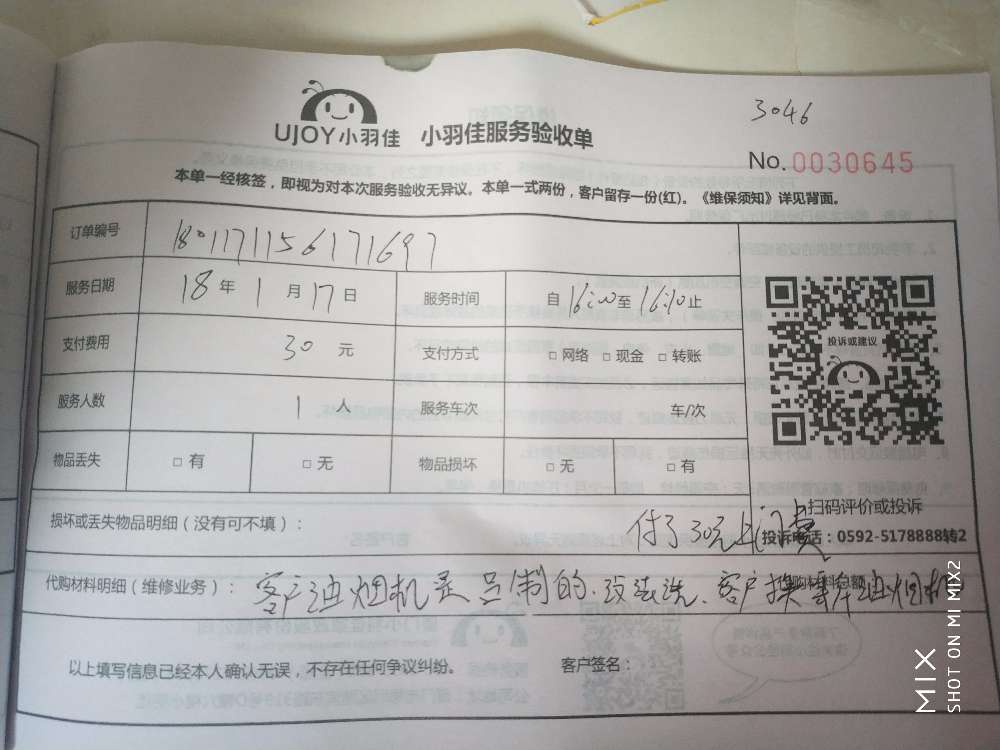 3046
UJOY小羽佳 小羽佳服务验收单
No. 0030645
本单一经核签，即视为对本次服务验收无异议。本单一式两份，客户留存一份(红)。《维保须知》详见背面。
订单编号 1801171156171697
服务日期 18 年 1 月 17 日 服务时间 自 16:00 至 16:10 止
投诉或建议
支付费用 30 元 支付方式 □ 网络 □ 现金 □ 转账
服务人数 1 人 服务车次 车/次
物品丢失 □ 有 □ 无 物品损坏 □ 无 □ 有
扫码评价或投诉
损坏或丢失物品明细（没有可不填）： 付了30元上门费
投诉电话：0592-5178888转2
代购材料明细（维修业务）： 客户油烟机是定制的.没法洗、客户换 油烟机
代购材料总额
以上填写信息已经本人确认无误，不存在任何争议纠纷。 客户签名：
MIX
SHOT ON MI MIX2